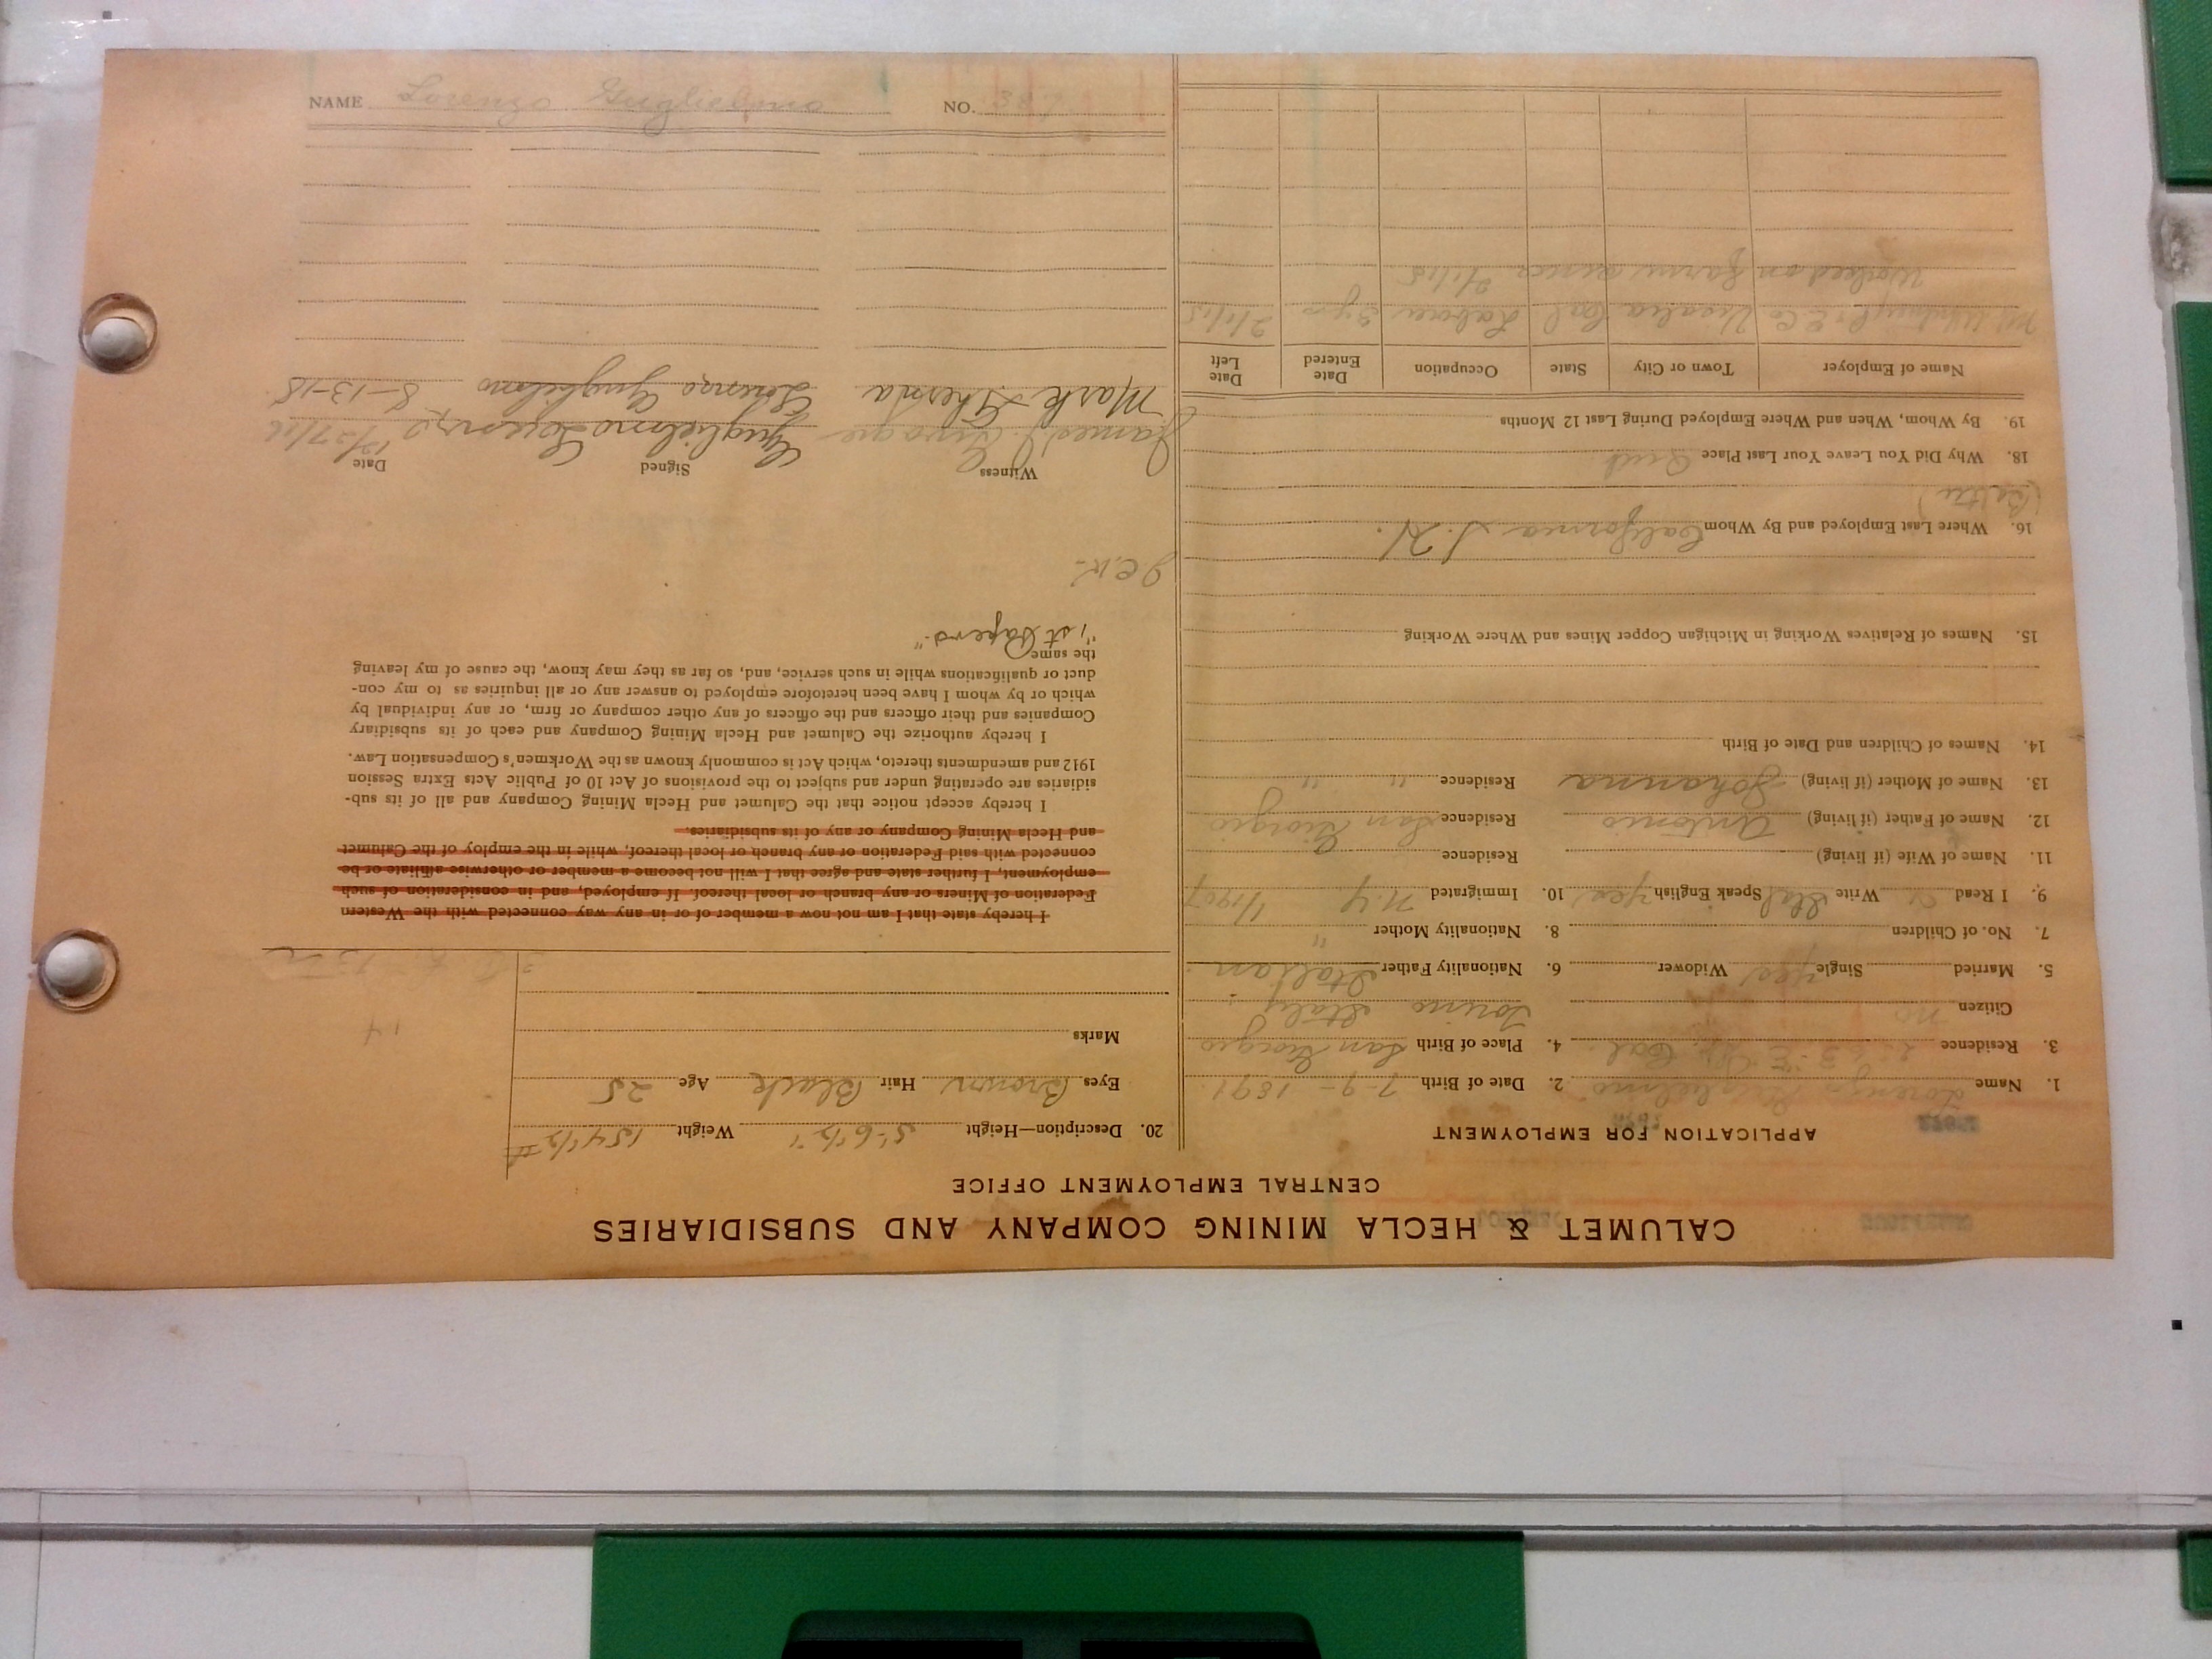 CALUMET & HECLA MINING COMPANY AND SUBSIDIARIES
CENTRAL EMPLOYMENT OFFICE
APPLICATION FOR EMPLOYMENT
1. Name Lorenzo Guglielmo 2. Date of Birth 7-9-1891
3. Residence Cal. 4. Place of Birth San Giorgio
Citizen no Torino Italy
5. Married Single yes Widower 6. Nationality Father Italian
7. No. of Children 8. Nationality Mother "
9. I Read Write Ital Speak English yes 10. Immigrated N.Y. 1/1907
11. Name of Wife (if living) Residence
12. Name of Father (if living) Antonio Residence San Giorgio
13. Name of Mother (if living) Johanna Residence " "
14. Names of Children and Date of Birth
15. Names of Relatives Working in Michigan Copper Mines and Where Working
16. Where Last Employed and By Whom California
18. Why Did You Leave Your Last Place Quit
19. By Whom, When and Where Employed During Last 12 Months
Name of Employer Town or City State Occupation Date Entered Date Left
Co Visalia Cal Laborer 3 yrs 2/1/15
Worked on farm since 2/1/15
20. Description—Height 5'-6 1/2" Weight 154 1/2 #
Eyes Brown Hair Black Age 25
Marks
14
I hereby state that I am not now a member of or in any way connected with the Western
Federation of Miners or any branch or local thereof. If employed, and in consideration of such
employment, I further state and agree that I will not become a member or otherwise affiliate or be
connected with said Federation or any branch or local thereof, while in the employ of the Calumet
and Hecla Mining Company or any of its subsidiaries.
I hereby accept notice that the Calumet and Hecla Mining Company and all of its sub-
sidiaries are operating under and subject to the provisions of Act 10 of Public Acts Extra Session
1912 and amendments thereto, which Act is commonly known as the Workmen's Compensation Law.
I hereby authorize the Calumet and Hecla Mining Company and each of its subsidiary
Companies and their officers and the officers of any other company or firm, or any individual by
which or by whom I have been heretofore employed to answer any or all inquiries as to my con-
duct or qualifications while in such service, and, so far as they may know, the cause of my leaving
the same
"1st Papers"
Witness Signed Date
James Guglielmo Lorenzo 12/27/16
Mark Lorenzo Guglielmo 8-13-18
NAME Lorenzo Guglielmo NO.